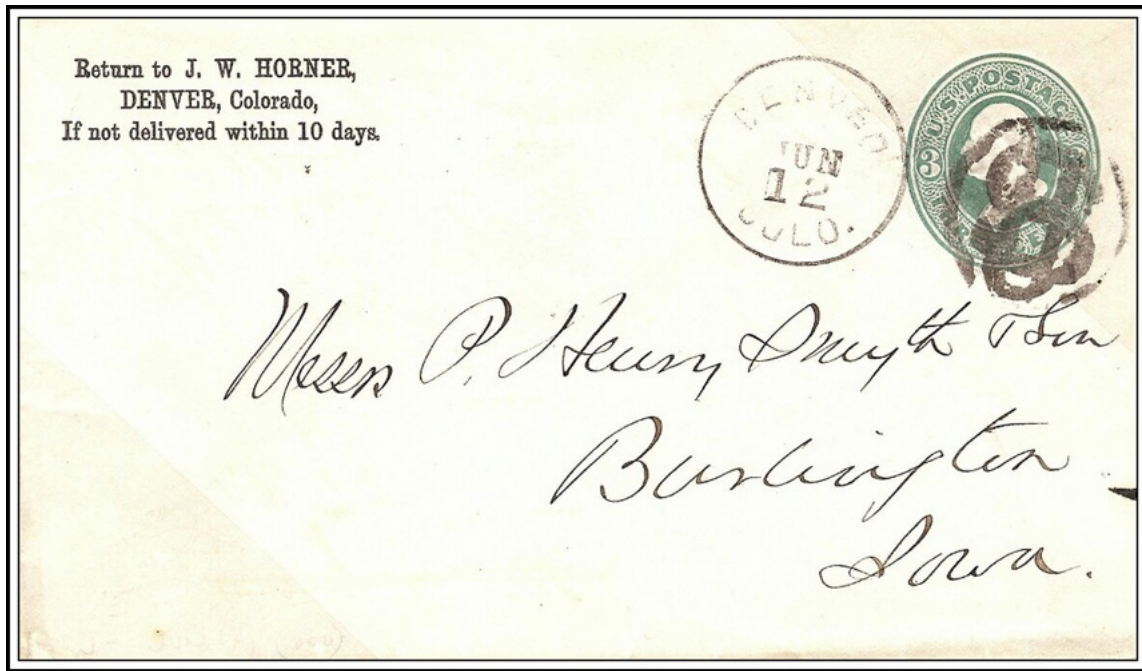 Return to J. W. HORNER,
DENVER, Colorado,
If not delivered within 10 days.
DENVER
JUN
12
COLO.
U.S. POSTAGE
3
Messrs P. Henry Smyth & Son
Burlington
Iowa.